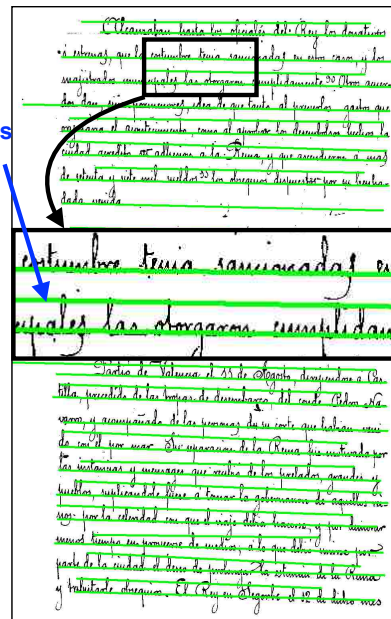 Alcanzaban hasta los oficiales del Rey los donativos
i estrenas, que la costumbre tenia sancionadas en estos casos, y los
magistrados municipales las otorgaron cumplidamente 30 Otros
dan, sus pormenores, idea de que tanto al primerlo gasto que
el acontecimiento, como al aprobar los
ciudad acredito su adhesion a la Reina, y que ascendieron a mas
de setenta y siete mil sueldos 30 los obsequios dispuestos por su
dada venida
s
costumbre tenia sancionadas es
cipales las otorgaron cumplidam
Partió de Valencia el de Agosto, dirigiendose a Cas-
tilla, precedida de las tropas de desembarco, del conde Pedro Na-
varro, y acompañada de las personas de su corte que habian veni-
do con el por mar. Su separacion de la Reina fue motivada por
las instancias y mensages que recibia de los prelados, grandes y
pueblos, suplicandole fuese a tomar la gobernacion de aquellos rei-
nos: por la celeridad con que el viaje debia hacerse, y por
menos tiempo en proveerse de medios, a lo que debe unirse por
parte de la ciudad el deseo de prolongar la estancia de la Reina
y tributarle obsequios. El Rey en Segorbe el 12 de dicho mes